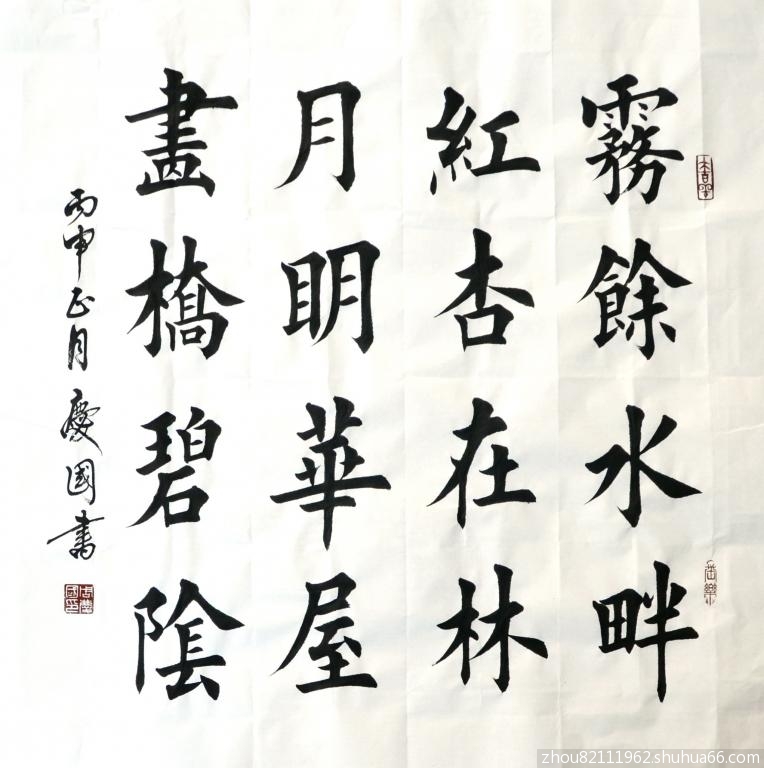 霧餘水畔
紅杏在林
月明華屋
畫橋碧陰
丙申正月慶國書
zhou82111962.shuhua66.com